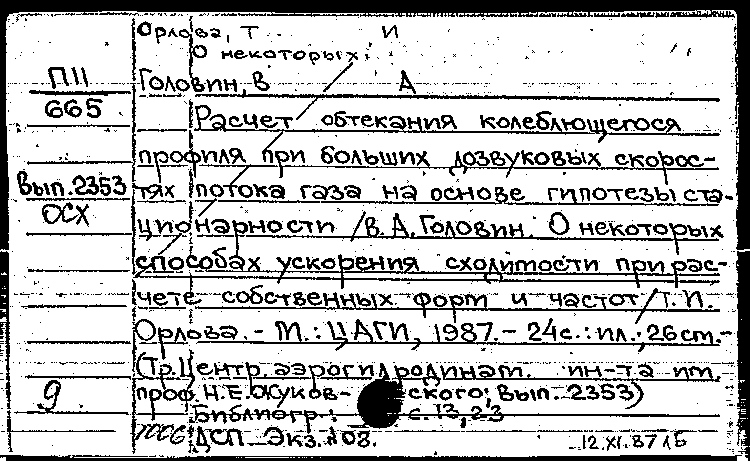 Орлова, Т И
О некоторых.
П11
665
Головин, В А
Расчет обтекания колеблющегося
профиля при больших дозвуковых скорос-
Вып. 2353
ОСХ
тях потока газа на основе гипотезы ста-
ционарности / В. А. Головин. О некоторых
способах ускорения сходимости при рас-
чете собственных форм и частот / Т. И.
Орлова. - М.: ЦАГИ, 1987. - 24 с.: ил.; 26 см. -
(Тр. Центр. аэрогидродинам. ин-та им.
9
проф. Н. Е. Жуков- ского; Вып. 2353)
Библиогр.: с. 13, 23
ДСП. Экз. 108.
12.XI.87